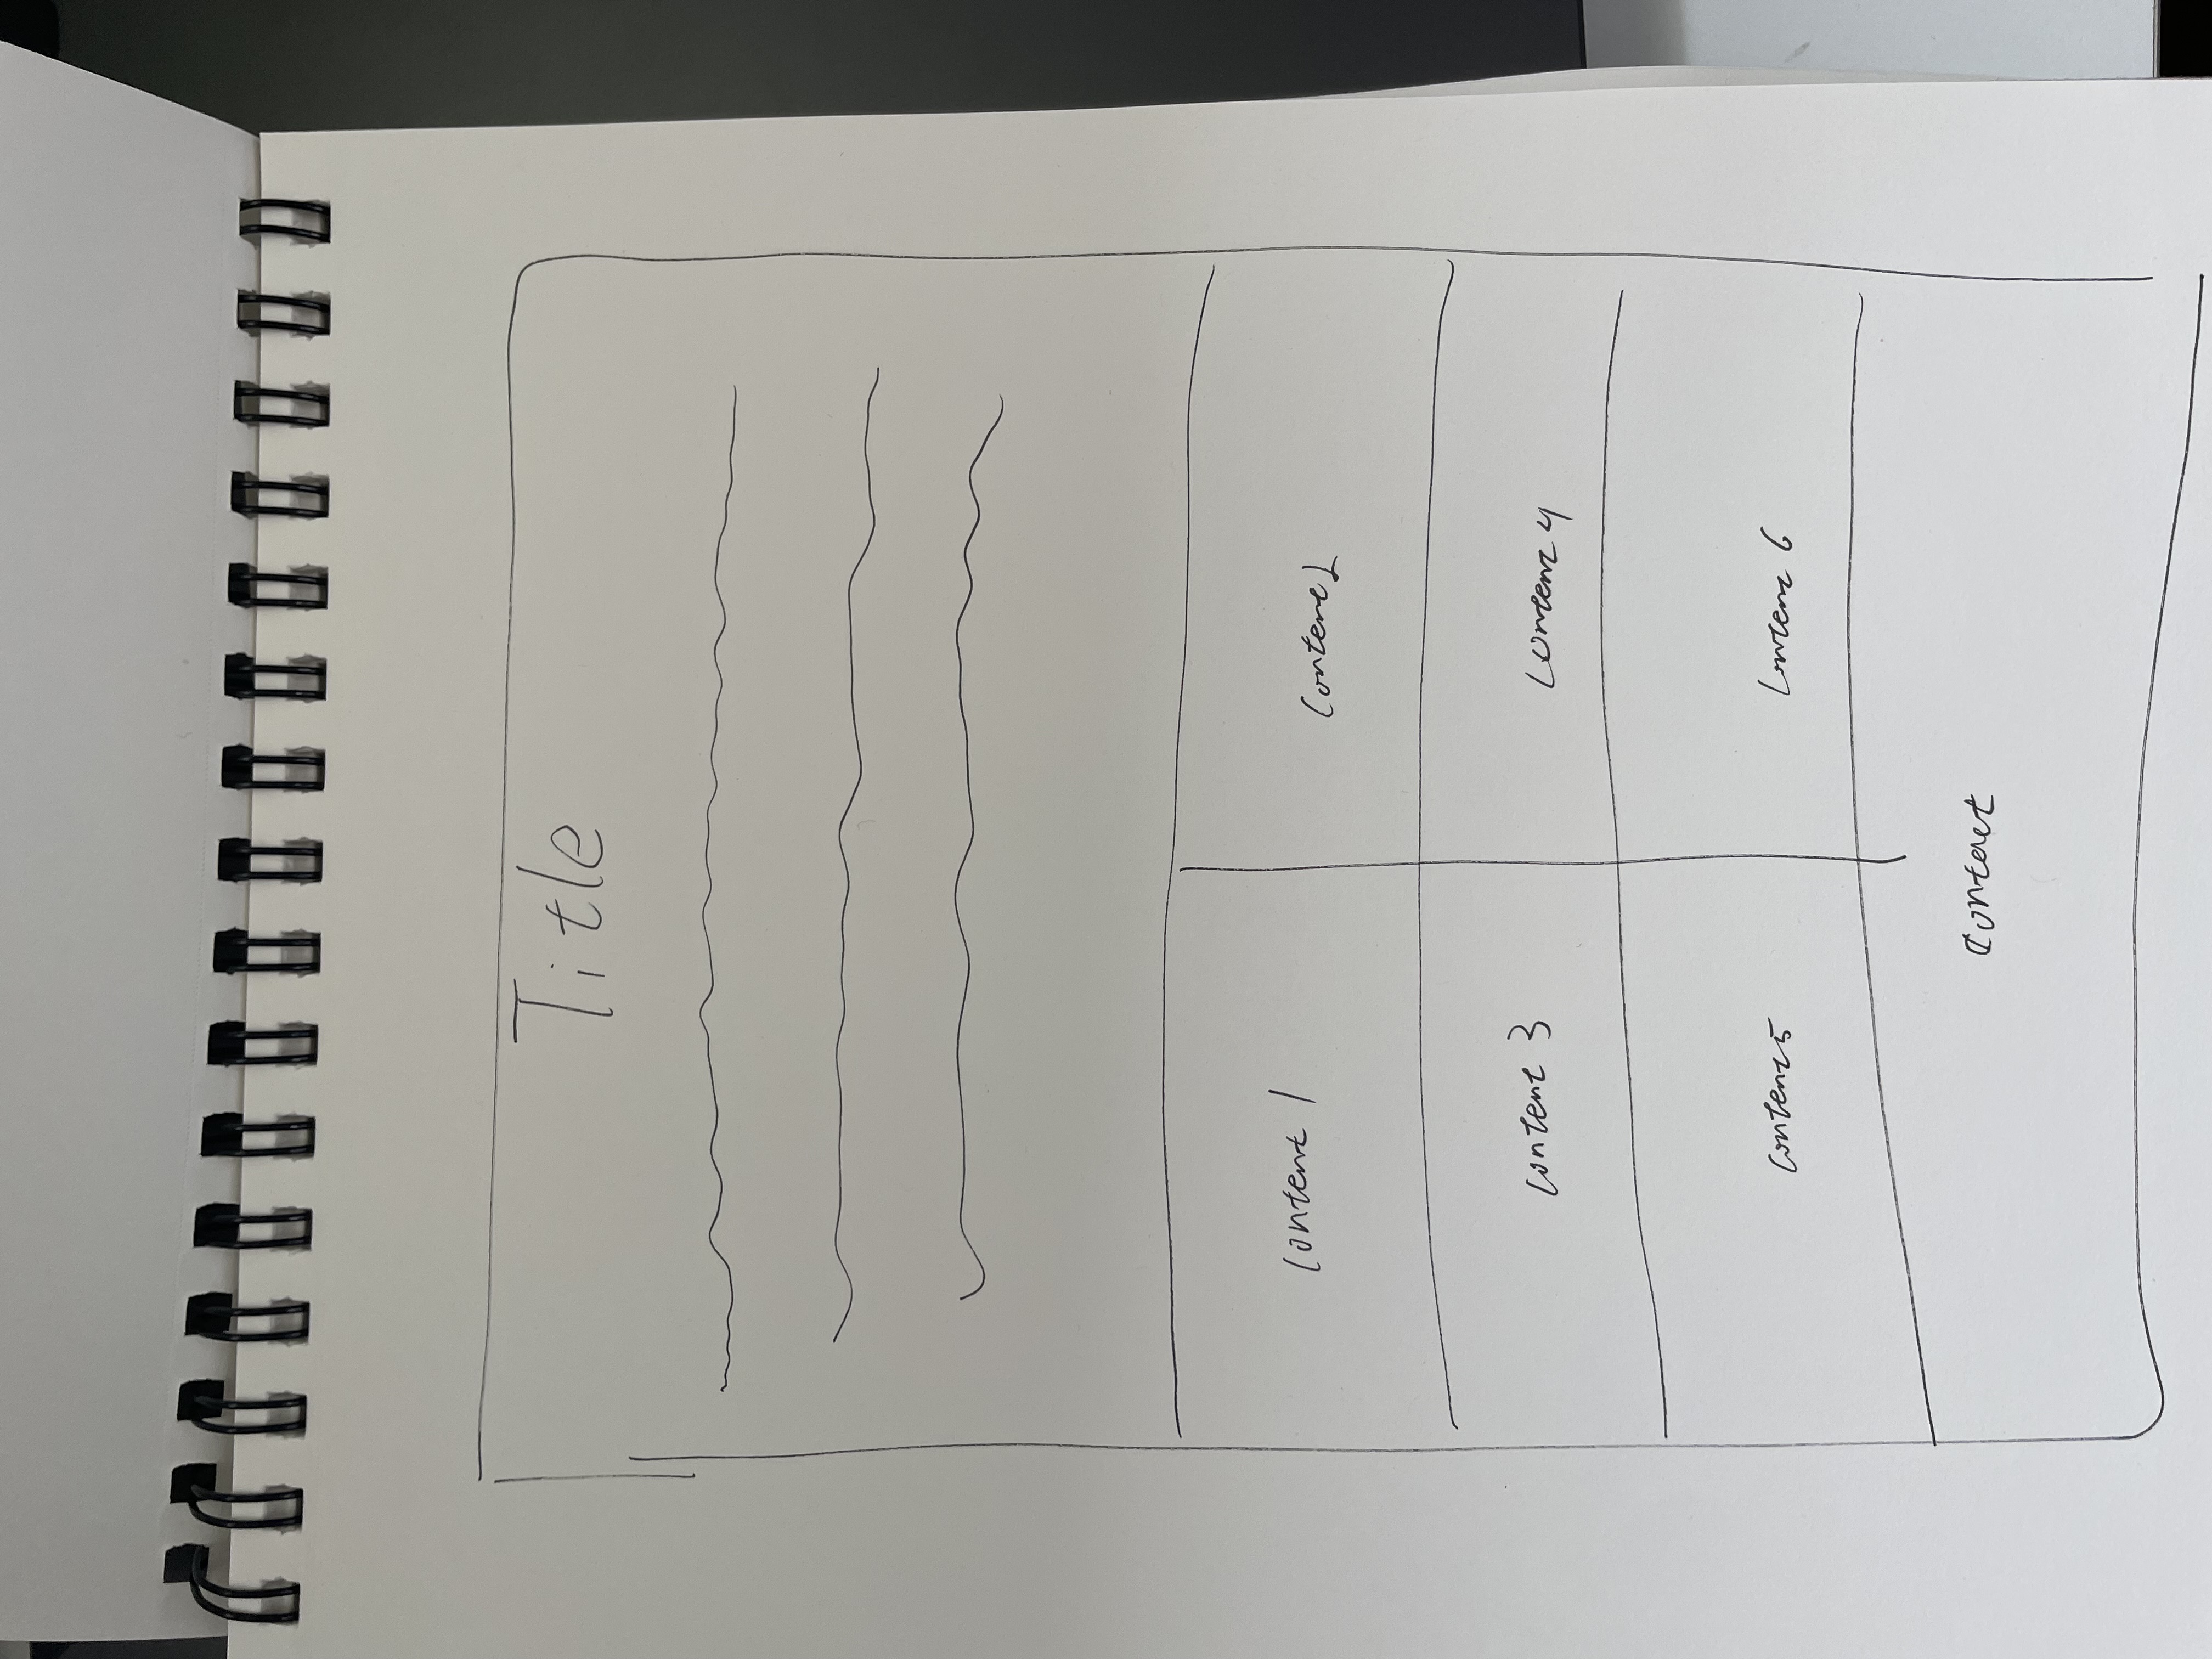 Title
Content 1
Content 2
Content 3
Content 4
Content 5
Content 6
Contact